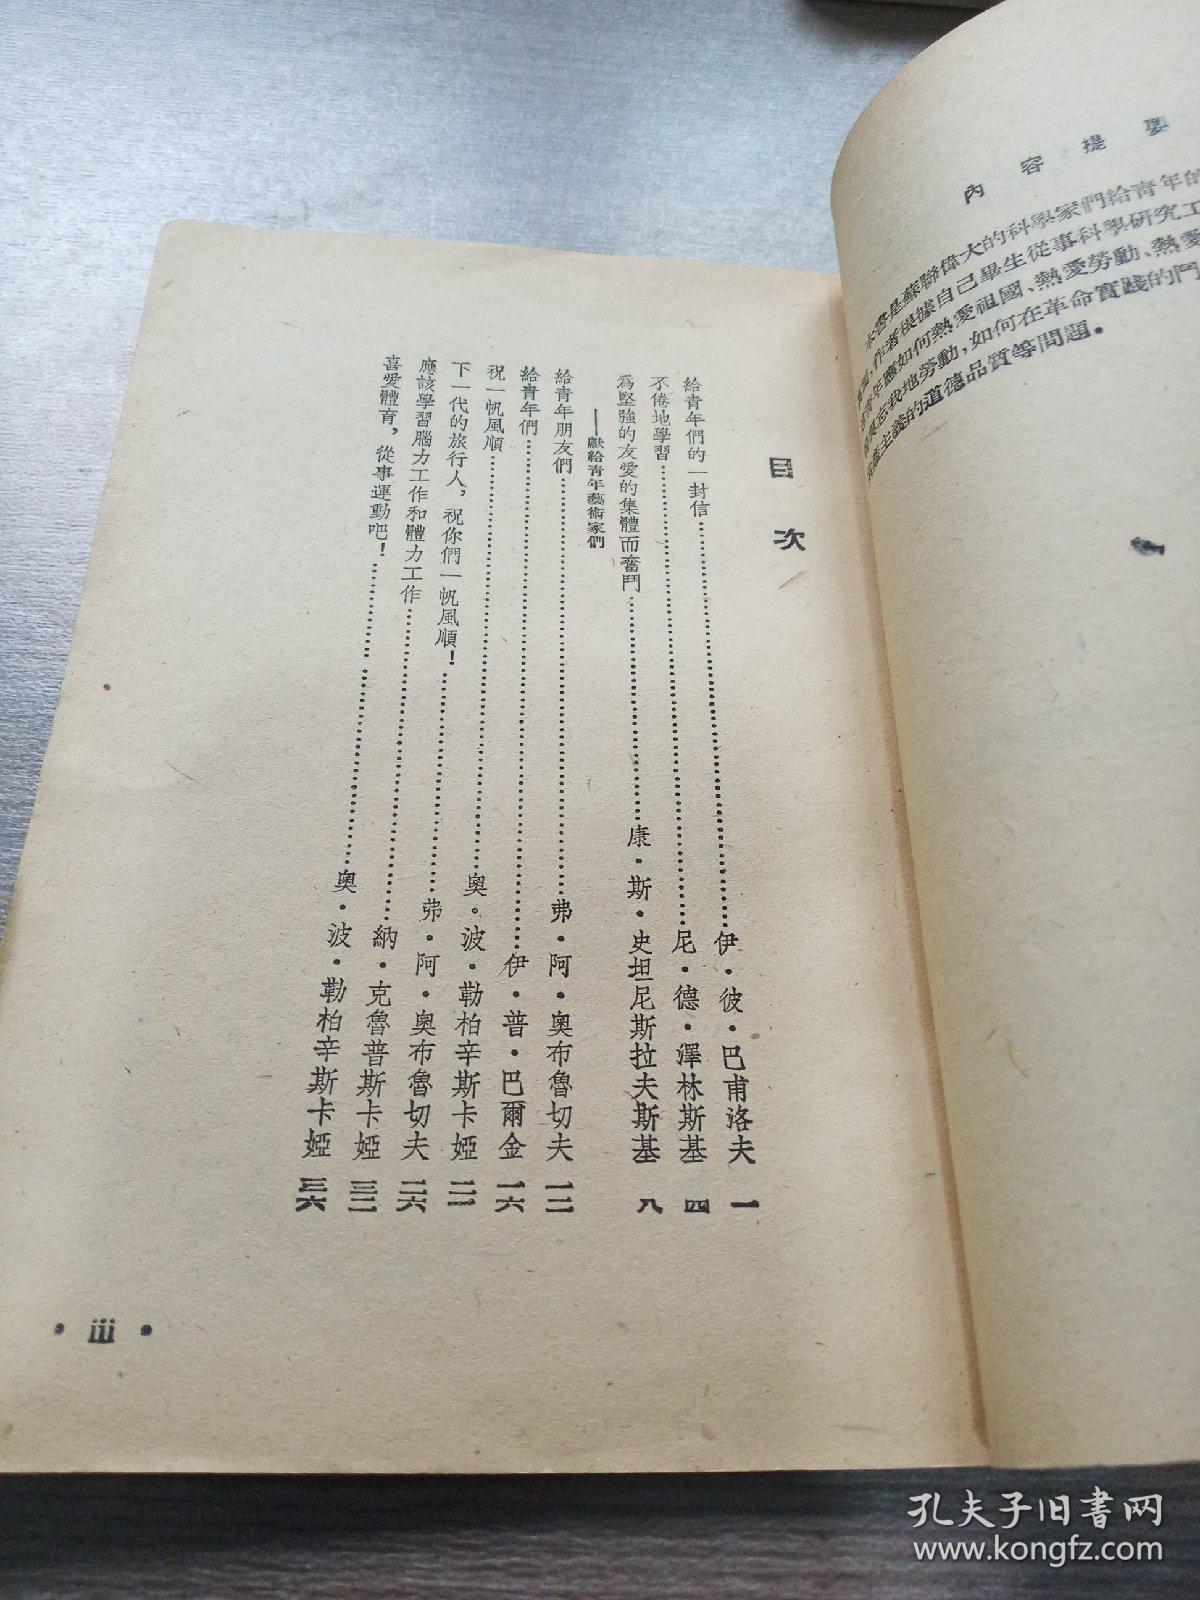 內容提要
本書是蘇聯偉大的科學家們給青年的
作者根據自己畢生從事科學研究工
青年應如何熱愛祖國、熱愛勞動、熱愛
忘我地勞動,如何在革命實踐的鬥
主義的道德品質等問題。
目次
給青年們的一封信……伊·彼·巴甫洛夫 一
不倦地學習……尼·德·澤林斯基 四
爲堅強的友愛的集體而奮鬥……康·斯·史坦尼斯拉夫斯基 八
——獻給青年藝術家們
給青年朋友們……弗·阿·奧布魯切夫 一二
給青年們……伊·普·巴爾金 一六
祝一帆風順……奧·波·勒柏辛斯卡婭 二一
下一代的旅行人,祝你們一帆風順!……弗·阿·奧布魯切夫 二六
應該學習腦力工作和體力工作……納·克魯普斯卡婭 三二
喜愛體育,從事運動吧!……奧·波·勒柏辛斯卡婭 三六
· iii ·
孔夫子旧书网
www.kongfz.com